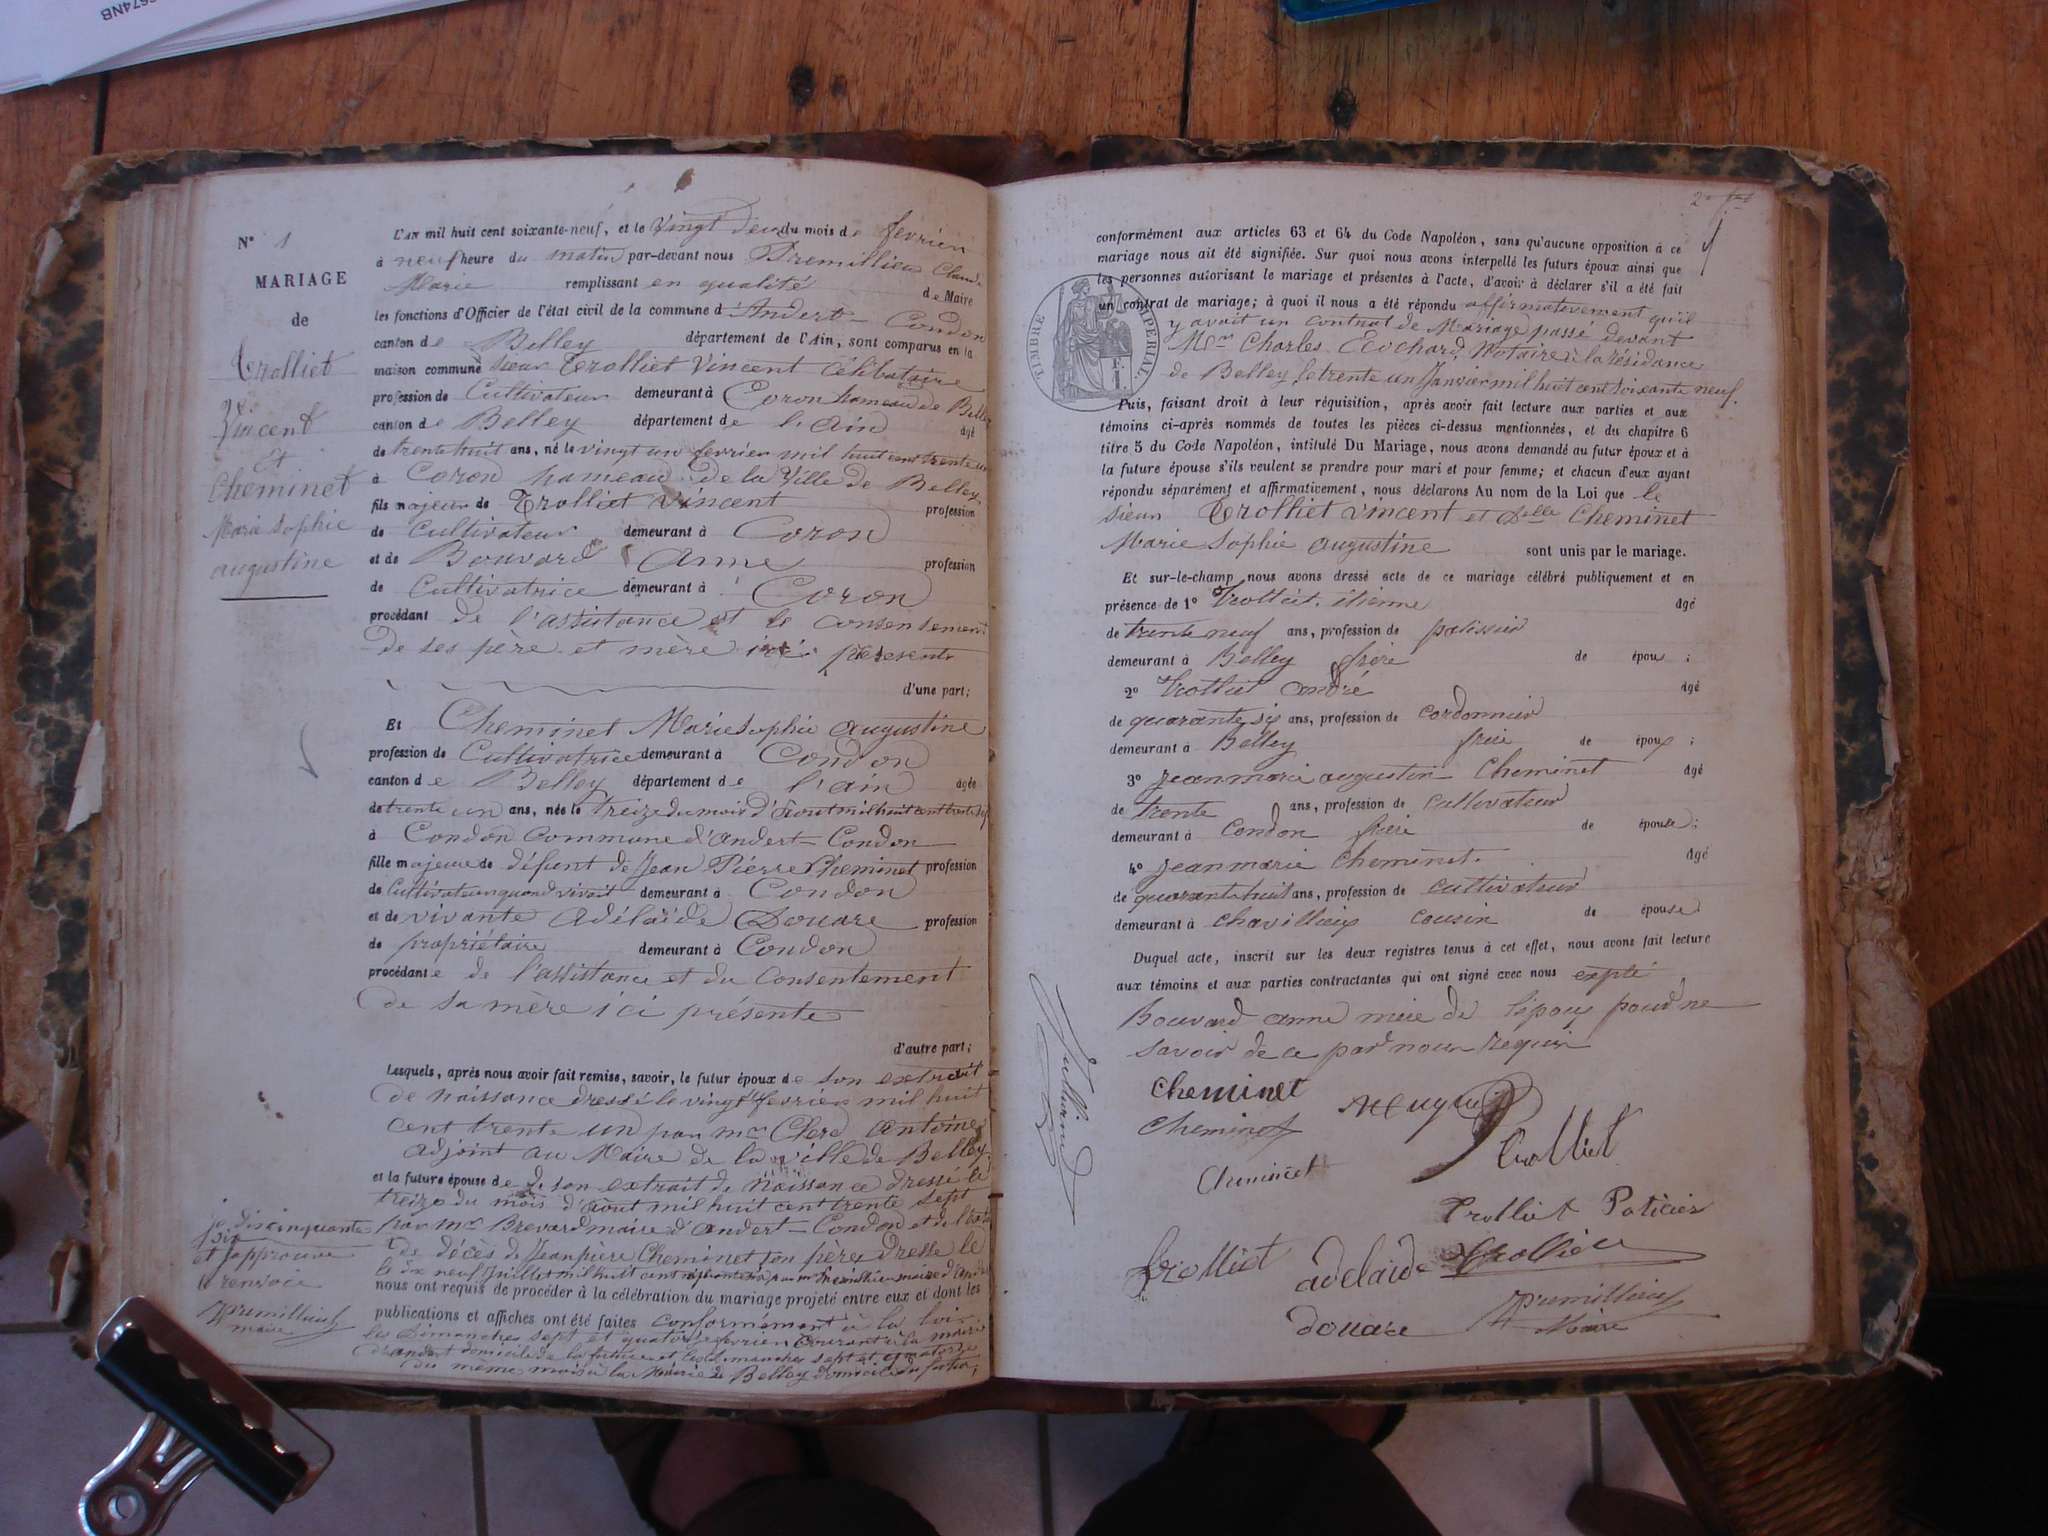 6674NB
N° 1
MARIAGE
de
Trolliet
Vincent
Et
Cheminet
Marie Sophie
augustine
L'AN mil huit cent soixante-neuf, et le Vingt deux du mois de fevrier
à neuf heure du matin par-devant nous Premillieu Claude
Marie remplissant en qualité de Maire
les fonctions d'Officier de l'état civil de la commune d'Andert-Condon
canton de Belley département de l'Ain, sont comparus en la
maison commune Sieur Trolliet Vincent Célibataire
profession de Cultivateur demeurant à Coron hameau de Belley
canton de Belley département de l'Ain âgé
de trente huit ans, né le vingt un fevrier mil huit cent trente un
à Coron hameau de la Ville de Belley
fils majeur de Trolliet Vincent profession
de Cultivateur demeurant à Coron
et de Bouvard Anne profession
de Cultivatrice demeurant à Coron
procédant de l'assistance et le consentement
de ses père et mère ici présents
d'une part;
Et Cheminet Marie Sophie augustine
profession de Cultivatrice demeurant à Condon
canton de Belley département de l'ain âgée
de trente un ans, née le treize du mois d'Aout mil huit cent trente sept
à Condon Commune d'Andert-Condon
fille majeure de défunt de Jean Pierre Cheminet profession
de Cultivateur quand vivait demeurant à Condon
et de vivante Adélaïde Douare profession
de propriétaire demeurant à Condon
procédante de l'assistance et du Consentement
de sa mère ici présente
d'autre part;
Lesquels, après nous avoir fait remise, savoir, le futur époux de son extrait
de Naissance dressé le vingt fevrier mil huit
cent trente un par mr Clerc Antoine
adjoint au Maire de la ville de Belley
et la future épouse de de son extrait de Naissance dressé le
treize du mois d'Aout mil huit cent trente sept
par mr Brevard maire d'andert-Condon et de l'extrait
de décès de Jean pierre Cheminet son père dresse le
dix neuf Juillet mil huit cent
nous ont requis de procéder à la célébration du mariage projeté entre eux et dont les
publications et affiches ont été faites conformément à la loi
les Dimanches sept et quatorze fevrier Courant à la mairie
d'andert domicile de la future et les Dimanches sept et quatorze
du même mois à la Mairie de Belley domicile du futur,
je dis cinquante
six
et j'approuve
le renvoi
Premillieu
maire
2e
conformément aux articles 63 et 64 du Code Napoléon, sans qu'aucune opposition à ce
mariage nous ait été signifiée. Sur quoi nous avons interpellé les futurs époux ainsi que
les personnes autorisant le mariage et présentes à l'acte, d'avoir à déclarer s'il a été fait
un contrat de mariage; à quoi il nous a été répondu affirmativement qu'il
y avait un contrat de Mariage passé devant
Mer Charles Cochard, Notaire à la résidance
de Belley le trente un Janvier mil huit cent soixante neuf.
TIMBRE IMPERIAL
F.
1.
Puis, faisant droit à leur réquisition, après avoir fait lecture aux parties et aux
témoins ci-après nommés de toutes les pièces ci-dessus mentionnées, et du chapitre 6
titre 5 du Code Napoléon, intitulé Du Mariage, nous avons demandé au futur époux et à
la future épouse s'ils veulent se prendre pour mari et pour femme; et chacun d'eux ayant
répondu séparément et affirmativement, nous déclarons Au nom de la Loi que le
Sieur Trolliet Vincent et Delle Cheminet
Marie Sophie augustine sont unis par le mariage.
Et sur-le-champ nous avons dressé acte de ce mariage célébré publiquement et en
présence de 1° Trolliet étienne âgé
de trente neuf ans, profession de patissier
demeurant à Belley frère de époux;
2° Trolliet andré âgé
de quarante six ans, profession de cordonnier
demeurant à Belley frère de époux;
3° Jean marie augustin Cheminet âgé
de trente ans, profession de cultivateur
demeurant à Condon frère de épouse;
4° Jean marie Cheminet. âgé
de quarante huit ans, profession de cultivateur
demeurant à Chavillieu cousin de épouse
Duquel acte, inscrit sur les deux registres tenus à cet effet, nous avons fait lecture
aux témoins et aux parties contractantes qui ont signé avec nous expté
Bouvard anne mère de l'époux pour ne
savoir de ce par nous requis
Cheminet
Cheminet
Cheminet
Trolliet
Trolliet Paticier
Trolliet
Trolliet
adelaide
douare
Premillieu
Maire